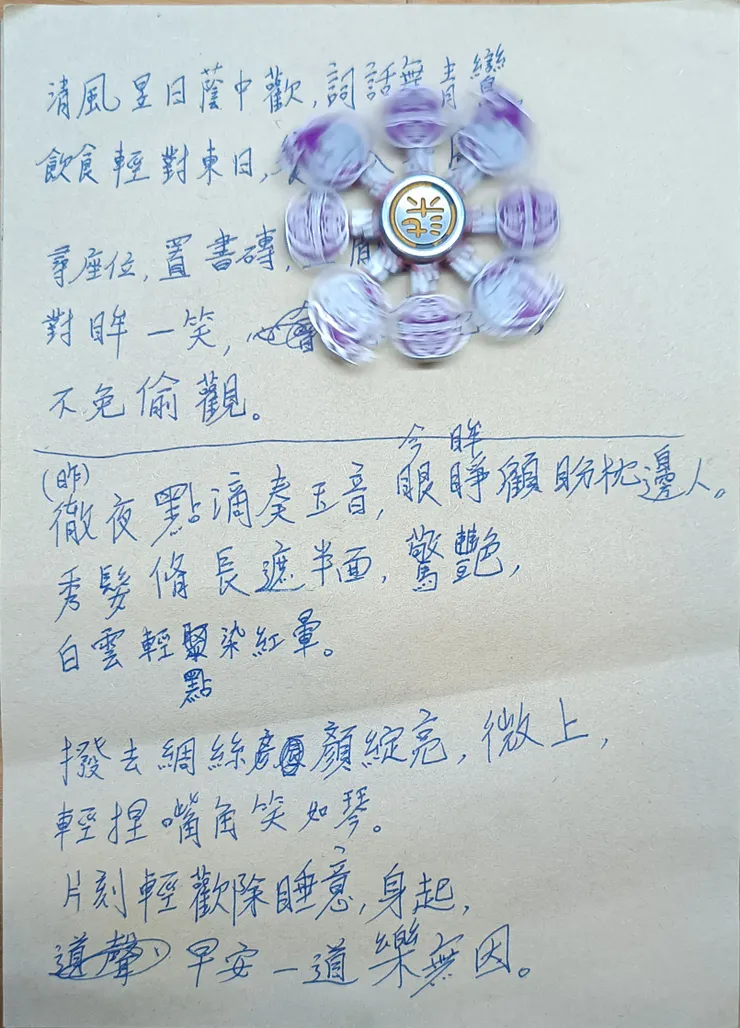 清風里日蔭中歡,詞話無青鸞,
飲食輕對東日,
尋座位,置書磚,
對眸一笑,
不免偷觀。
今眸
(昨)
徹夜點滴奏五音,眼睜顧盼枕邊人。
秀髮脩長遮半面,驚艷,
白雲輕染紅暈。
點
撥去綢絲顏綻亮,微上,
輕捏嘴角笑如琴。
片刻輕歡除睡意,身起,
道聲早安一道樂無因。